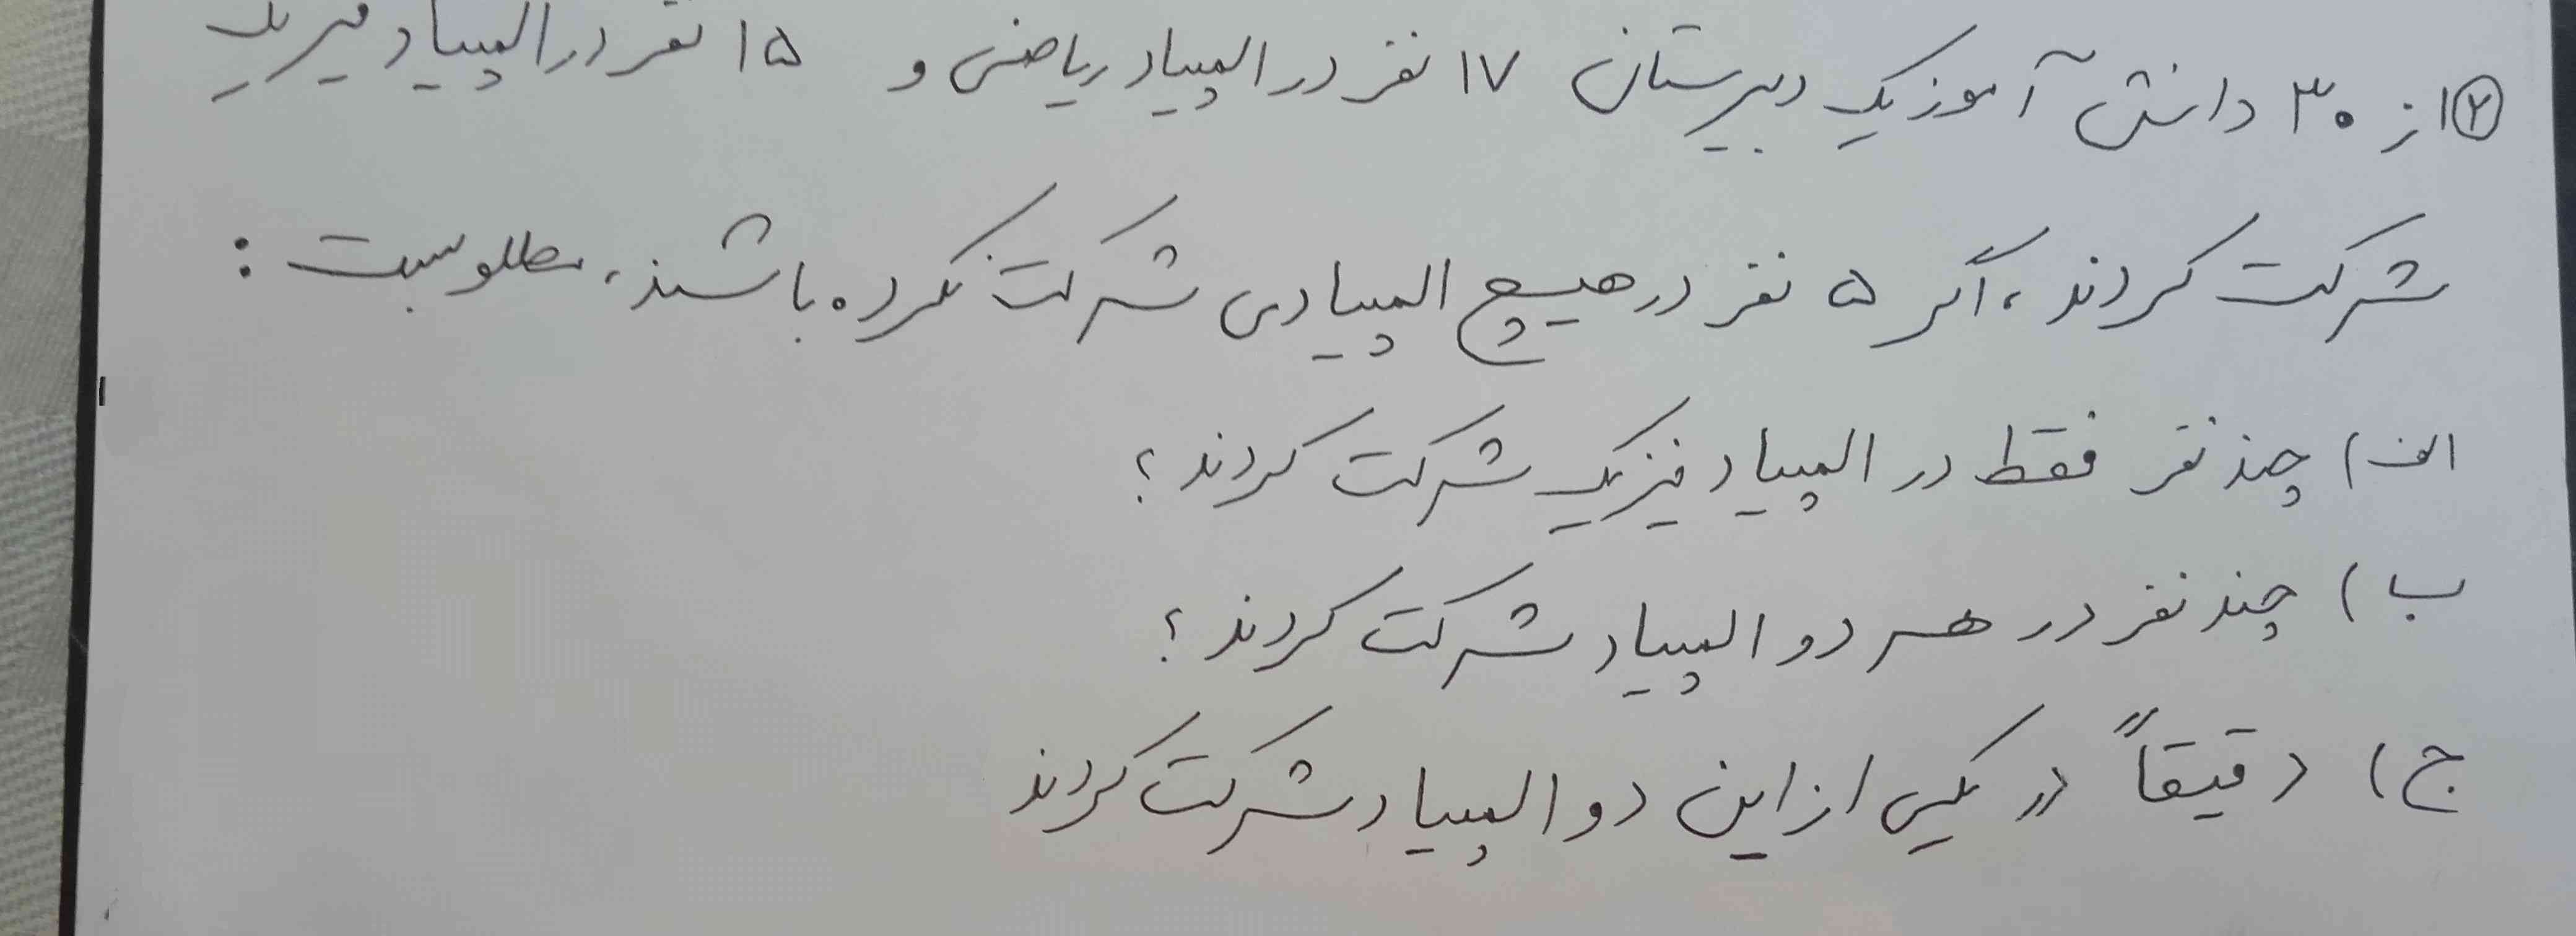 ۲) از ۳۰ دانش آموز یک دبیرستان ۱۷ نفر در المپیاد ریاضی و ۱۵ نفر در المپیاد فیزیک
شرکت کردند، اگر ۵ نفر در هیچ المپیادی شرکت نکرده باشند، مطلوبست :
الف) چند نفر فقط در المپیاد فیزیک شرکت کردند؟
ب) چند نفر در هر دو المپیاد شرکت کردند؟
ج) دقیقاً در یکی از این دو المپیاد شرکت کردند